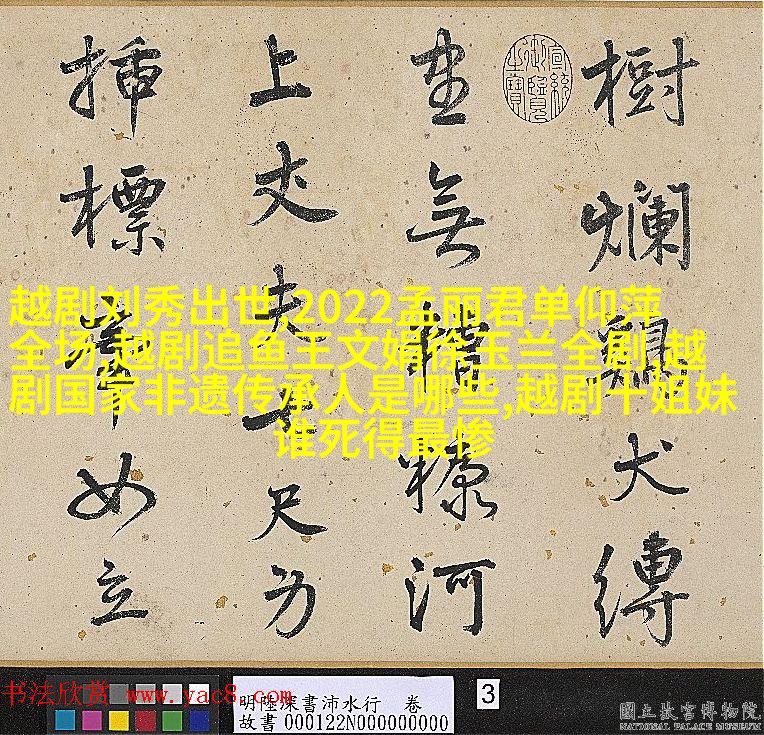 樹爛犬縛
宣統御覽之寶
坐無糟糠河
上丈夫尺
插標女立
越剧刘秀出世,2022孟丽君单仰萍
全场,越剧追鱼王文娟徐玉兰全剧,越
剧国家非遗传承人是哪些,越剧十姐妹
谁死得最惨
书法欣赏 www.yac8.com
明陸深書沛水行 卷
故書000122N000000000
3
國立故宮博物院
NATIONAL PALACE MUSEUM